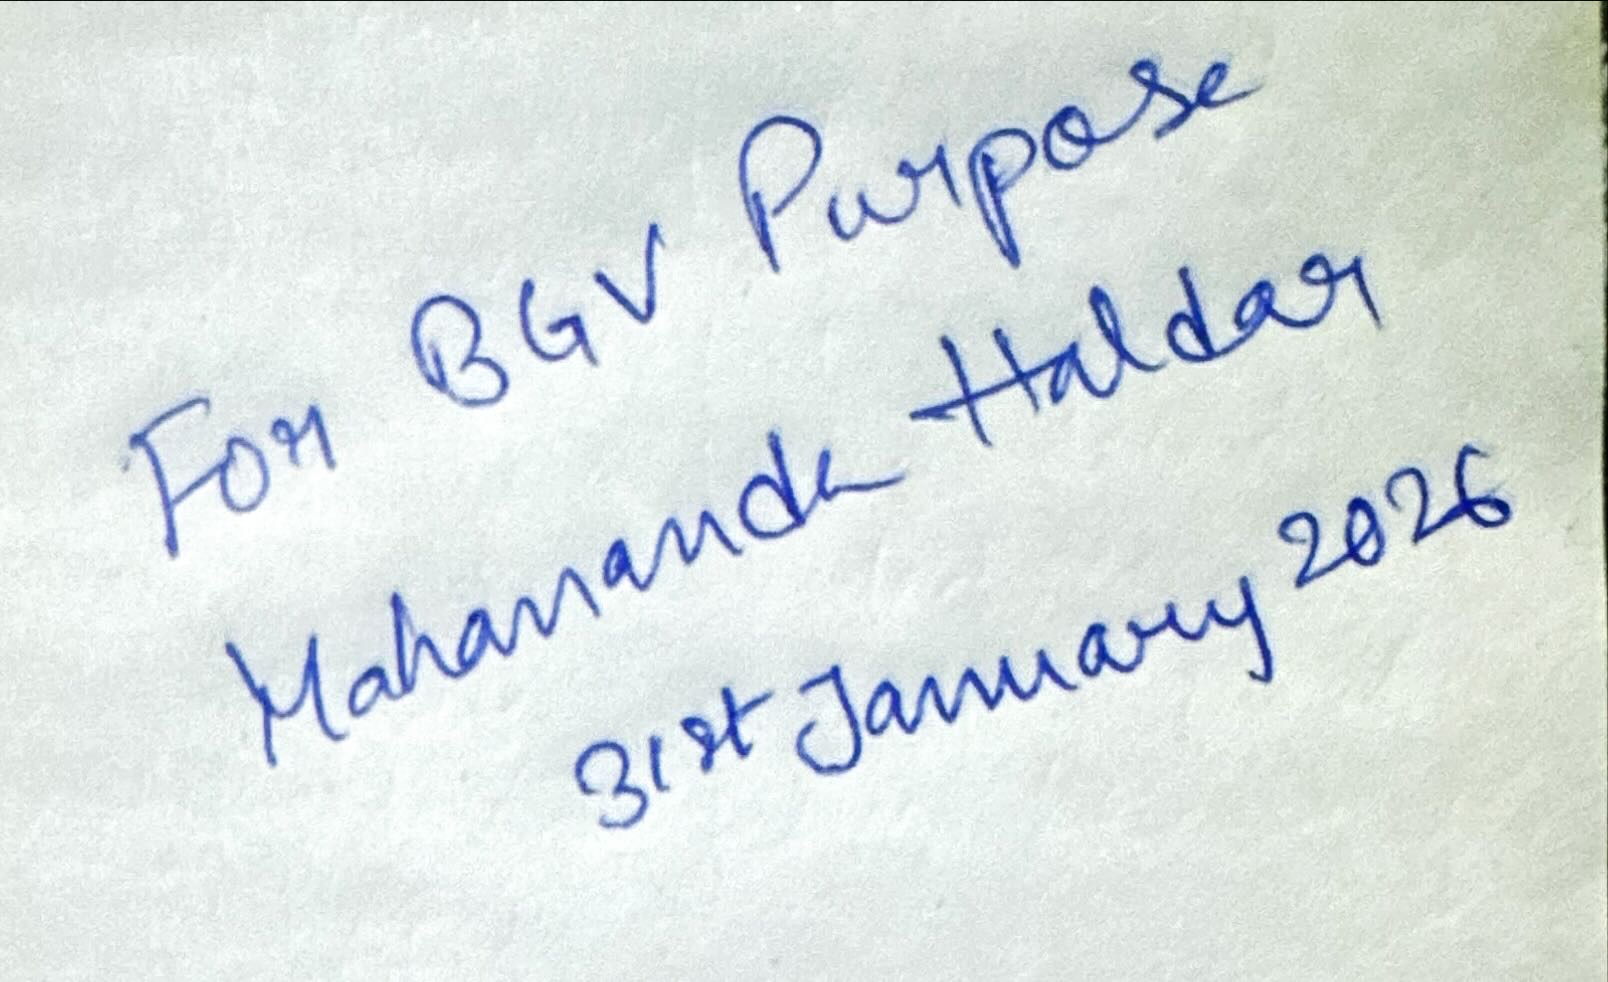 For BGV Purpose
Mahananda Haldar
31st January 2026